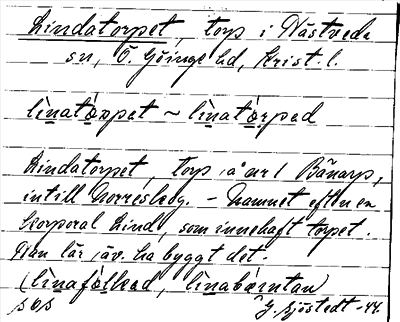 Lindatorpet, torp i Näsveda
sn, Ö. Göinge hd, Krist. l.
lìnatòrpat ~ lìnatòrped
Lindatorpet, torp å nr 1 Bånarp,
intill Norreskog. – Namnet efter en
korporal Lind, som innehaft torpet.
Han lär även ha byggt det.
(lìnafòlkad, lìnabæ̀rntan)
G. Sjöstedt -44.